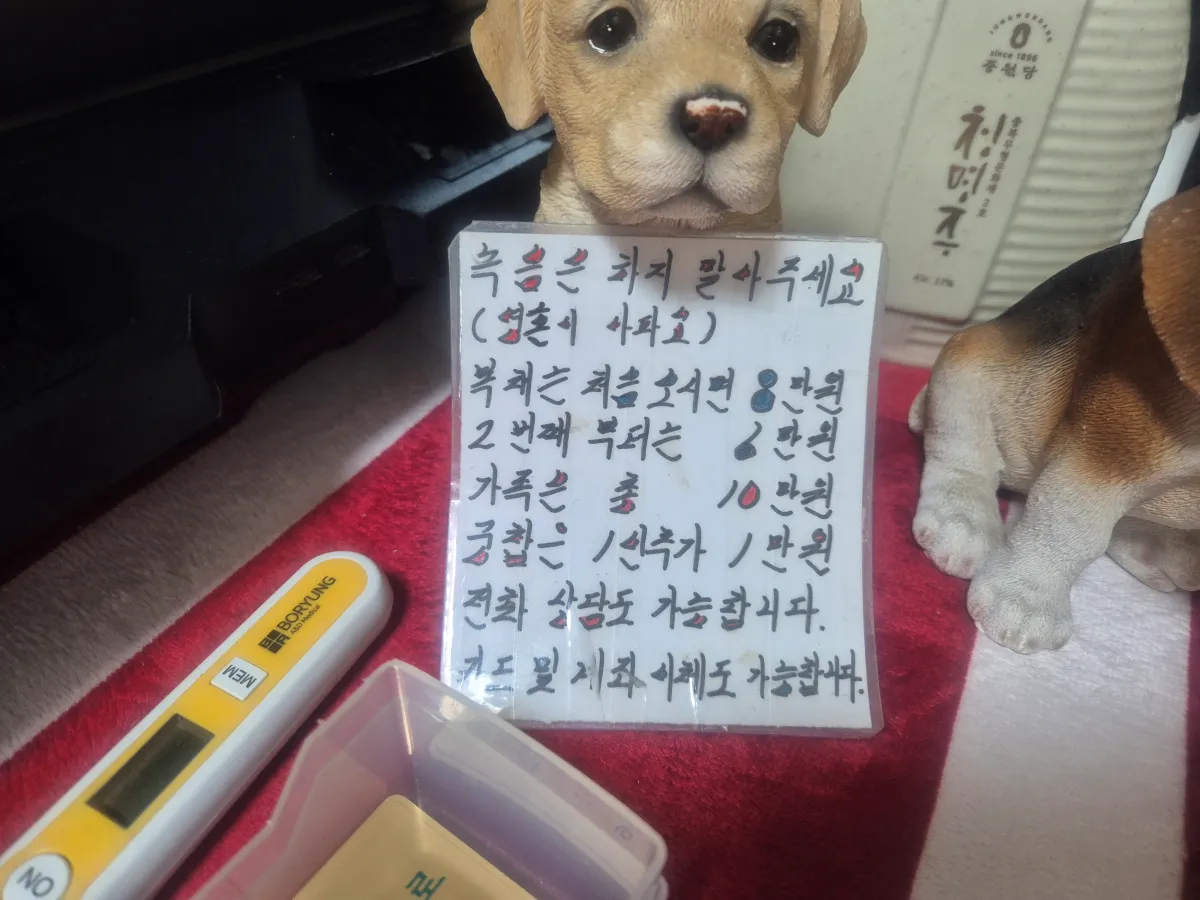 녹음은 하지 말아주세요
(영혼이 아파요)
복채는 처음 오시면 8만원
2번째 부터는 6만원
가족은 총 10만원
궁합은 1인추가 1만원
전화 상담도 가능합니다.
카드 및 계좌 이체도 가능합니다.
JUNGWONDANG
since 1896
중원당
청명주
충북무형문화재 2호
Alc. 17%
BORYUNG
A&D Medical
MEM
ON
로